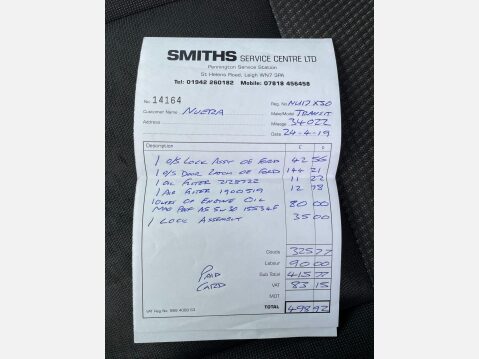 SMITHS SERVICE CENTRE LTD
Pennington Service Station
St Helens Road, Leigh WN7 3PA
Tel: 01942 260182 Mobile: 07818 456458
No. 14164
Reg. No. NU17 XSO
Customer Name NUERA
Make/Model TRANSIT
Address
Mileage 34022
Date 24-4-19
Description £ p
1 O/S LOCK ASSY OE FORD 42 56
1 O/S DOOR LATCH OE FORD 144 21
1 OIL FILTER 2128722 11 22
1 AIR FILTER 1900519 12 78
10LTRS OF ENGINE OIL
MAG PROF A5 5W30 80 00
1 LOCK ASSEMBLY 35 00
Goods 325 77
Labour 90 00
Sub Total 415 77
PAID
CARD
VAT 83 15
MOT
VAT Reg No.
TOTAL 498 92